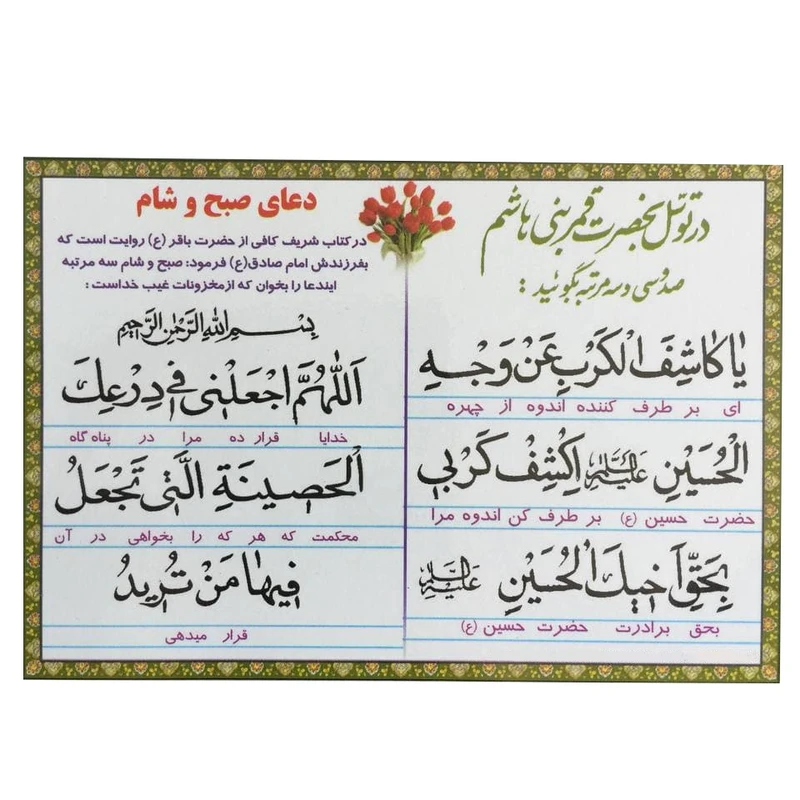 در توسّل بحضرت قمر بنی هاشم
صد و سی و سه مرتبه بگوئید :
یٰا كٰاشِفَ الْكَرْبِ عَنْ وَجْهِ
ای بر طرف کننده اندوه از چهره
الْحُسَیْنِ عَلَیْهِ السَّلَامُ اِكْشِفْ كَرْبی
حضرت حسین (ع) بر طرف کن اندوه مرا
بِحَقِّ اَخیكَ الْحُسَیْنِ عَلَیْهِ السَّلَامُ
بحق برادرت حضرت حسین (ع)
دعای صبح و شام
در کتاب شریف کافی از حضرت باقر (ع) روایت است که
بفرزندش امام صادق(ع) فرمود: صبح و شام سه مرتبه
ایندعا را بخوان که از مخزونات غیب خداست :
بِسْمِ اللهِ الرَّحْمٰنِ الرَّحیمِ
اَللّٰهُمَّ اجْعَلْنی فی دِرْعِكَ
خدایا قرار ده مرا در پناه گاه
الْحَصینَةِ الَّتی تَجْعَلُ
محکمت که هر که را بخواهی در آن
فیهٰا مَنْ تُریدُ
قرار میدهی